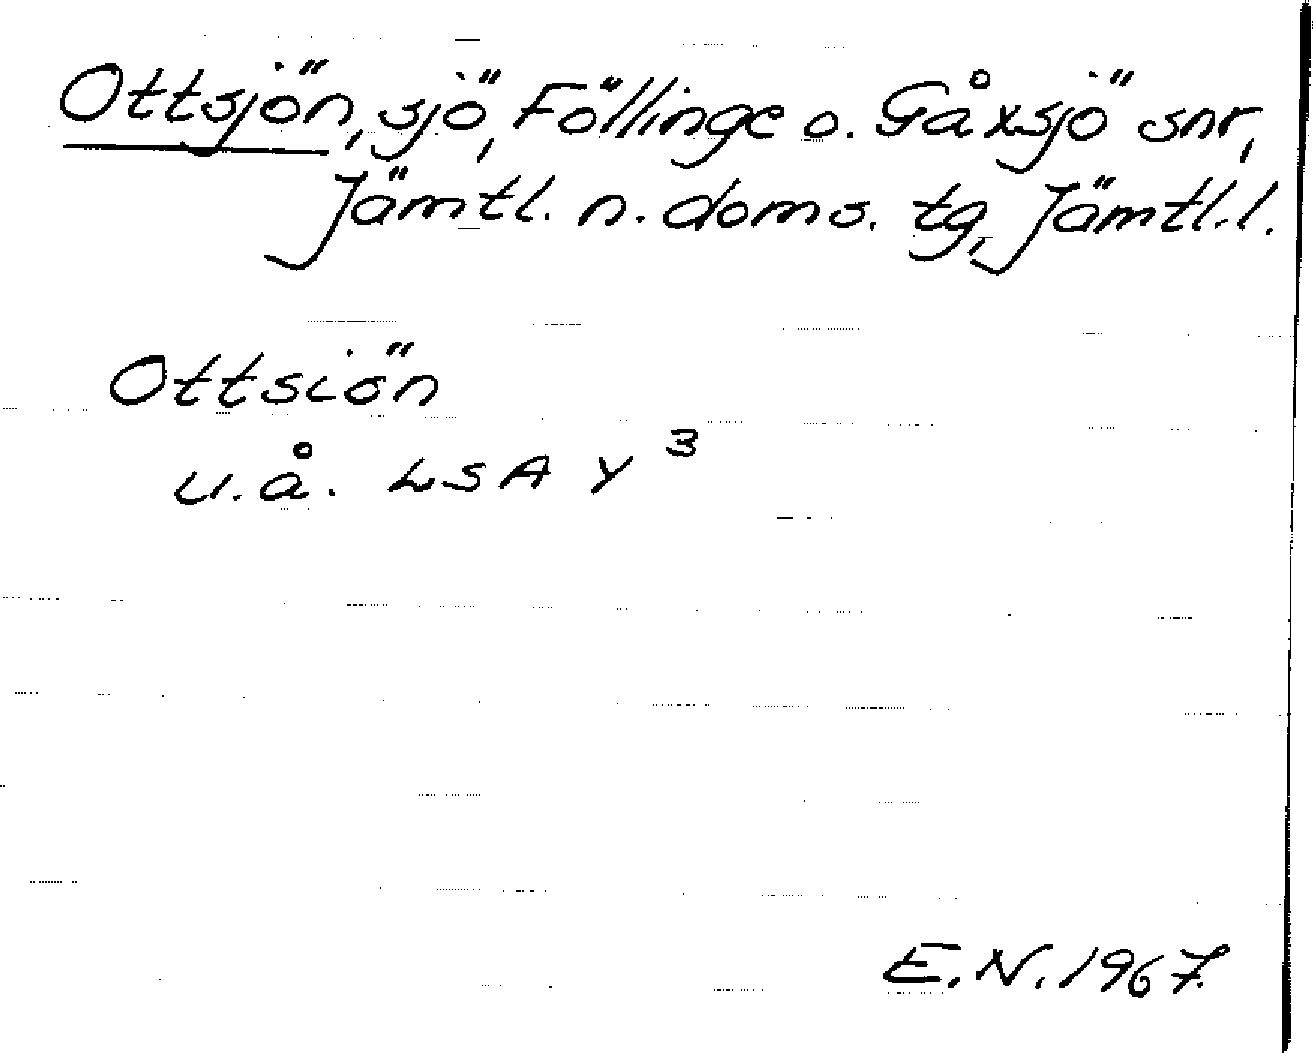 Ottsjön, sjö, Föllinge o. Gåxsjö snr,
Jämtl. n. doms. tg, Jämtl. l.
Ottsiön
u.å. LSA Y 3
E.N. 1967.